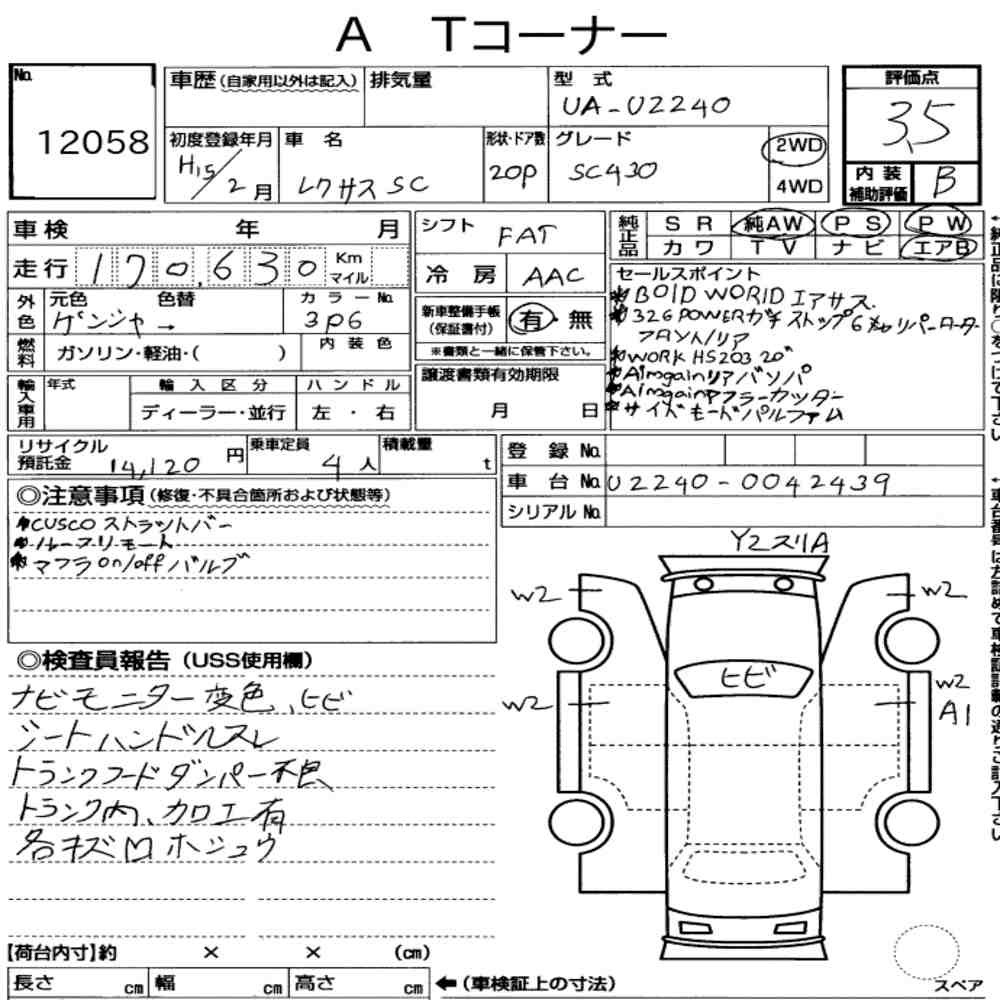 A Tコーナー
No.
12058
車歴(自家用以外は記入)
排気量
型式
UA-UZZ40
評価点
3.5
初度登録年月
H15/2月
車名
レクサス SC
形状・ドア数
20P
グレード
SC430
2WD
4WD
内装補助評価
B
車検 年 月
走行 170,630 Km マイル
シフト
FAT
冷房
AAC
純正品
SR 純AW PS PW
カワ TV ナビ エアB
外色
元色 色替
ゲンジャ→
カラーNo.
3P6
新車整備手帳(保証書付)
有・無
※書類と一緒に保管下さい。
燃料
ガソリン・軽油・( )
内装色
譲渡書類有効期限
月 日
輸入車用
年式
輸入区分
ディーラー・並行
ハンドル
左・右
セールスポイント
*BOLD WORLD エアサス.
*326POWERガチストップ6キャリパーローター
フロント/リア
*WORK HS203 20"
*Aimgainリアバンパ
*Aimgainマフラーカッター
*サイドモードパルファム
リサイクル預託金 14,120円
乗車定員 4人
積載量 t
登録No.
車台No. UZZ40-0042439
シリアルNo.
◎注意事項(修復・不具合箇所および状態等)
*CUSCO ストラットバー
*ルーフリモート
*マフラon/offバルブ
◎検査員報告(USS使用欄)
ナビモニター変色、ヒビ
シートハンドルスレ
トランクフードダンパー不良
トランク内、カロエ有
各キズ凹ホシュウ
Y2スリA
W2
W2
ヒビ
W2
W2
A1
【荷台内寸】約 × × (cm)
長さ cm 幅 cm 高さ cm
←(車検証上の寸法)
スペア